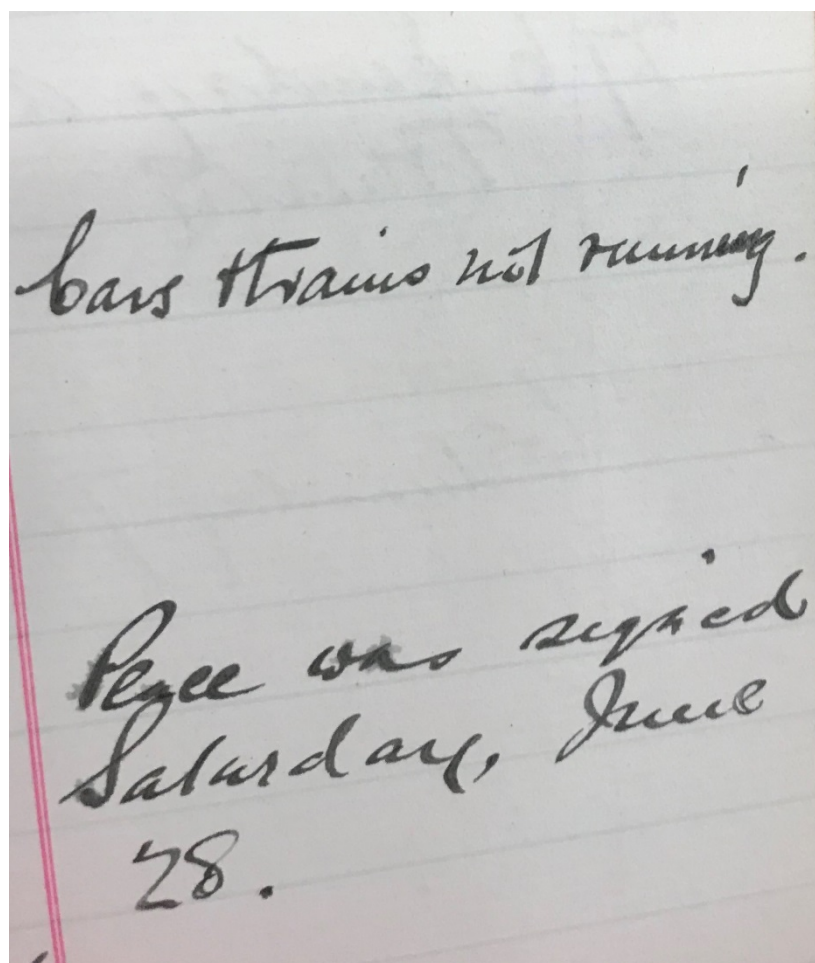 Cars & trains not running.
Peace was signed
Saturday, June
28.